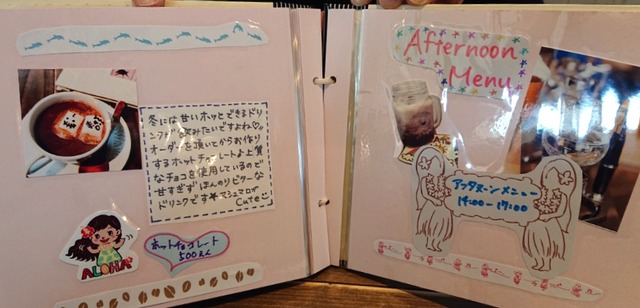 冬には甘いホッとできるドリ
ンクが飲みたいですよね♡
オーダーを頂いてからお作り
するホットチョコレートは上質
なチョコを使用しているので
甘すぎず ほんのりビターな
ドリンクです★マシュマロが
Cute☺
ALOHA
ホットチョコレート
500えん
Afternoon
Menu
アフタヌーンメニュー
14:00-17:00